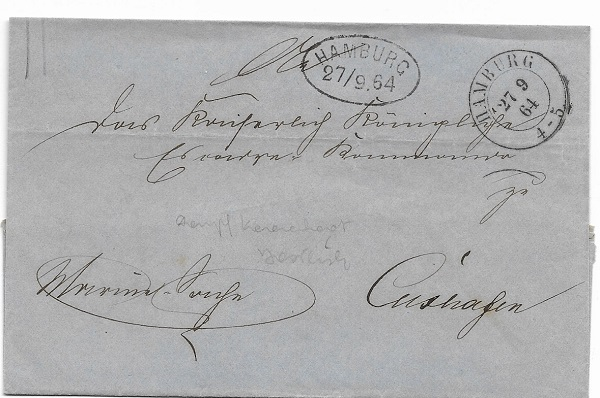 HAMBURG
27/9.64
HAMBURG
27 9
64
4-5
An
Das Kaiserlich Königliche
Escadre-Kommando
zu
Marine-Sache
Cuxhafen